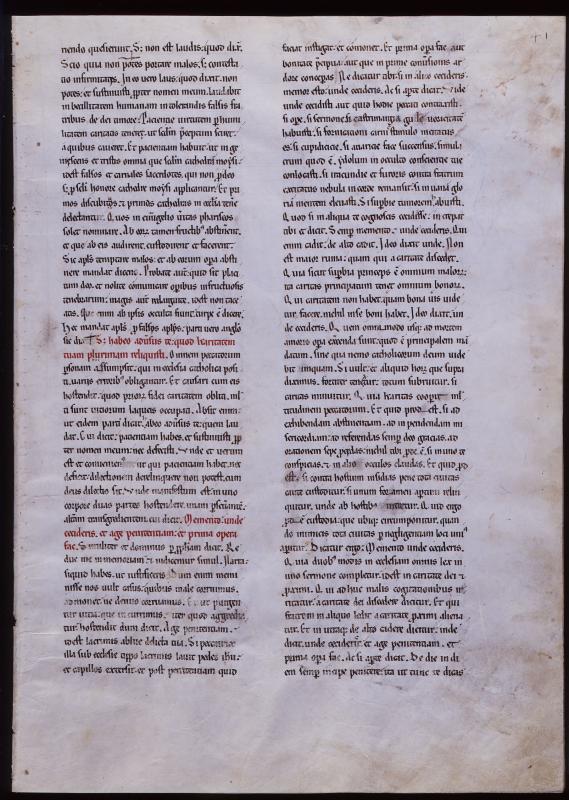 riendo quesierunt. S: non est laudis: quod dix.
Scio quia non potes portare malos. s; contesta
tio infirmitatis. In eo uero laus: quod dixit. non
potes: et sustinuisti propter nomen meum. laudabit
tribus. de dei timore: Pacientie uirtutem p humi
litatem caritatis tenere. ut salui perpetim
a quibus cauere. Et pacientiam habuit. ut in ge
idest falsos et carnales sacerdotes. qui non p deo
s; p sui honore cathedre moysi applicantur. Et pri
mos discubitus. et primas cathedras in ecclesia tenere
delectantur. Quos in euangelio ueritas phariseos
solet nominare. Ab corum tamen fructibus abstinere.
et que ab eis audirent. custodirent et facerent.
Sic apls temptare malos: et ab eorum opera absti
nere mandat dicens. Probate aut: quid sit placi
tum deo. et nolite comunicare operibus infructuosis
tenebrarum: magis aut redarguite. idest non tace
atis. Que enim ab ipsis occulta fiunt. turpe e dicere.
Hoc mandat apls. p falsis aplis: pari uero anglo
sic dix. S: habeo aduersus te: quod karitatem
tuam plurimam reliquisti. Omnem peccatorum
personam assumpsit: qui in ecclesia catholica posi
ti. uariis erroribus obligantur. Et causari cum eis
hostendit. quod priori fidei caritatem oblita. ml
ti sunt uitiorum laqueis occupati. Absit enim.
ut eidem parti dicat. habeo aduersus te: quem lau
dat. Cui dicit: pacientiam habes. et sustinuisti pp
ter nomen meum: nec defecisti. Unde et uerum
est et conueniens ut qui pacientiam habet. nec
deficit: dilectionem derelinquere non potest. cum
deus dilectio sit. Unde manifestum est: in uno
corpore duas partes hostendere. unam perseuerantem:
aliam transgredientem. cui dicit. Memento: unde
cecideris. et age penitentiam. et prima opera
fac. Similiter et dominus p prophetam dicit. Re
duc me in memoriam: et iudicemur simul. Narra:
siquid habes. ut iustificeris. Dum enim memi
nisse nos uult casus: quibus male corruimus.
admonet: ne denuo corruamus. Et
tur hostendit dum dicit. Age penitentiam.
idest lacrimis ablue delicta tua. Si peccatrix
illa sub ecclesie typo lacrimis lauit pedes ihu:
et capillos extersit: et post penitentiam quid
faciat instigat: et comonet. Et prima opera fac: aut
bonitatis precipua: aut que in prime conuersionis ar
dore conceperas. Ne dicatur tibi: si in alio cecideris.
memor esto: unde cecideris. de si aperte dicit. Unde
unde cecidisti: aut quo hodie peccati contraxisti.
si ope. si sermone. si castrimargia gule uoracitate
habuisti: si fornicationi carni stimulo incitatus
es: si cupidicie. si auaritie face succensus. simula
crum quod e. ydolum in oculto conscientie tue
conlocasti. si iracundie et furoris concita fratrum
exercitatus nebula in corde remansit: si in uana glo
ria mentem eleuasti. Si superbie tumorem abiisti.
Quod si in aliqua te cognoscas cecidisse: increpat
tibi et dicit. Semper memento: unde cecideris. Qui
enim cadit: de alto cadit. Ideo dixit unde. Non
est maior ruina: quam qui a caritate discedet.
Quia sicut superbia princeps e omnium malorum:
ita caritas principatum tenet omnium bonorum.
Qui caritatem non habet: quam bona uis uide
tur facere. nichil inse boni habet. Ideo dixit. un
de cecideris. Quem omni modo usque ad mortem
amoris opera excercenda sunt: quod e principalem man
datum. sine qua nemo catholicorum deum uide
bit inquam. Si uile: et aliquid horum que supra
diximus. fortiter teneatur: totum subruitur. si
caritas minuitur. Quia karitas cooperit ml
titudinem peccatorum. Et quid prodest. si ad
exhibendam abstinentiam. ad impendendam mi
sericordiam: ad referendas semper deo gratias. ad
orationem sepe properes: nichil tibi prodest. si in uno te
conspicias. et in alio occulos claudas. Et quid pro
est. si contra hostium insidias pene tota ciuitas
caute custoditur. si unum foramen apertum relin
quitur. unde ab hostibus intretur. Quid ergo
prodest custodia: que ubique circumponitur. quan
do inimicis tota ciuitas p negligentiam loci unius
aperitur. Dicatur ergo: Memento unde cecideris.
Quia duobus modis in ecclesiam omnis lex in
uno sermone completur. idest in caritate dei et
proximi. Qui in adhuc malis cogitationibus in
ricatur: a caritate dei discedere dicitur. Et qui
fratrem in aliquo ledit: a caritate proximi aliena
tur. Et in utraque: de alto cadere dicitur. inde
dicit. unde cecideris: et age penitentiam. et
prima opera fac. de si aperte dicit. De die in di
em semper incipe penitere: ita ut tunc te dicas